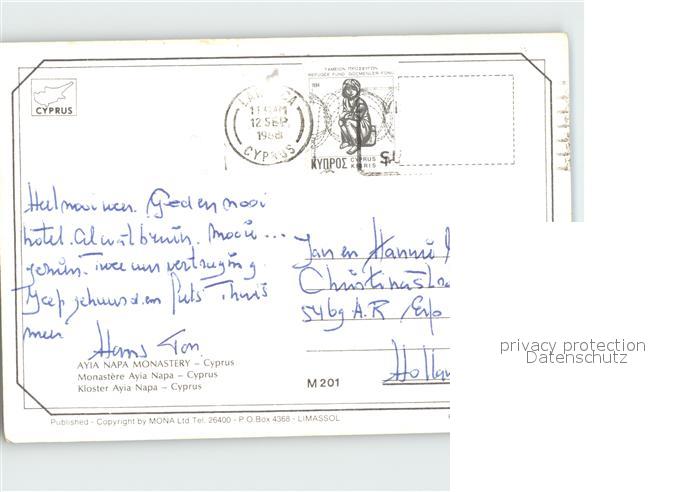 CYPRUS
LARNACA
11 45AM
12 SEP
1988
CYPRUS
ΤΑΜΕΙΟΝ ΠΡΟΣΦΥΓΩΝ
REFUGEE FUND GÖÇMENLER FONU
1984
ΚΥΠΡΟΣ CYPRUS
KIBRIS
Heel mooi weer. Goed en mooi
hotel. Al wat bruin. Mooie ...
Twee uur vertraging
Jeep gehuurd en fiets Thuis
meer
Hans Ton
Jan en Hannie
Christinastra
5469 A.R Erp
Hollan
AYIA NAPA MONASTERY – Cyprus
Monastère Ayia Napa – Cyprus
Kloster Ayia Napa – Cyprus
M 201
Published - Copyright by MONA Ltd Tel. 26400 - P.O.Box 4368 - LIMASSOL
privacy protection
Datenschutz